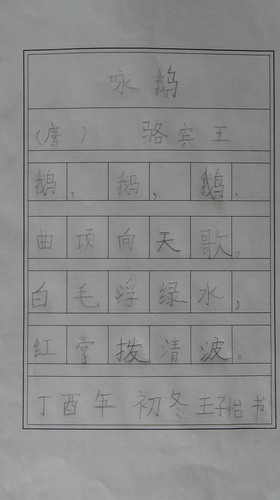 咏鹅
（唐） 骆宾王
鹅，鹅，鹅.
曲项向天歌。
白毛浮绿水，
红掌拨清波。
丁酉年 初冬 王子怡书